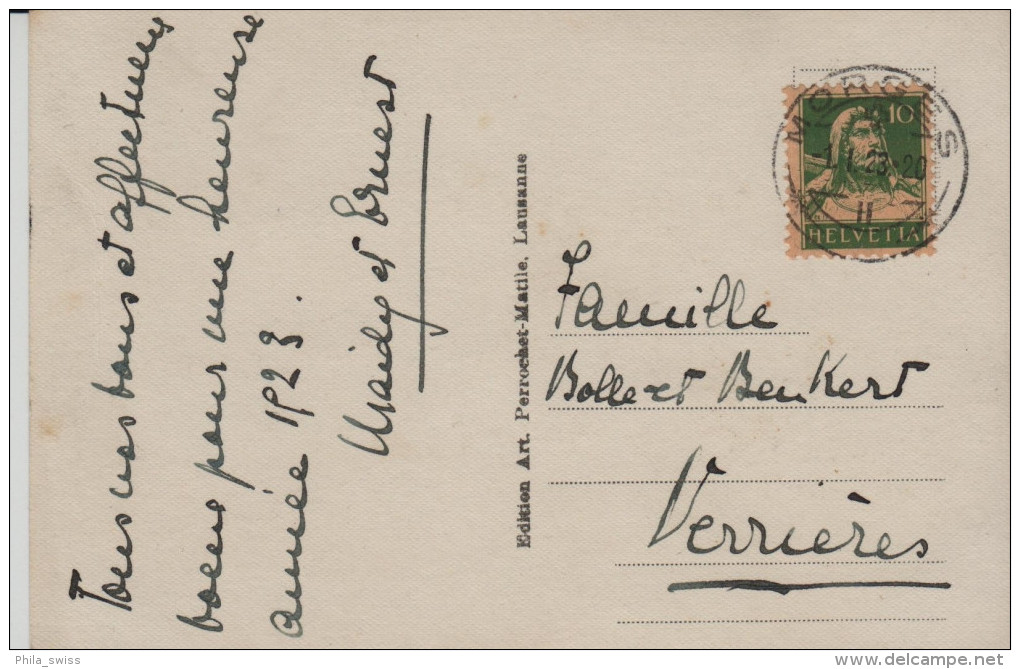 Tous nos bons et affectueux
voeux pour une heureuse
année 1923.
Maidy et Ernest
Edition Art. Perrochet-Matile, Lausanne
MORGES
1.I.23.20
II
10
HELVETIA
Famille
Bolle et Benkert
Verrières
Phila_swiss
delcampe.net